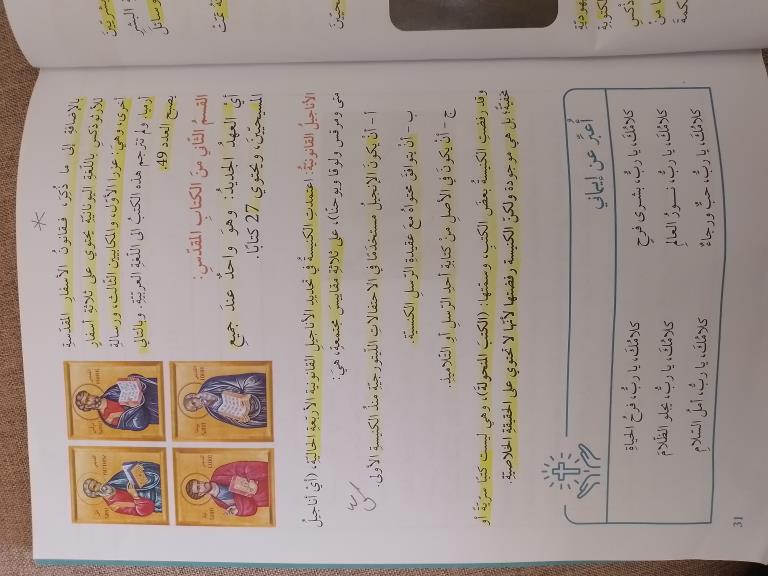 بالإضافة إلى ما ذُكِرَ، فقانونُ الأسفارِ المقدّسةِ
للأرثوذكسِ باللّغةِ اليونانيّةِ يحتوي على ثلاثةِ أسفارٍ
أخرى، وهي: عزرا الأوّل، والمكابيين الثّالث، ورسالةِ
أرميا. ولم تترجم هذه الكتبُ الى اللّغةِ العربيّةِ. وبالتالي
يصبح العدد 49.
القسمُ الثّاني منَ الكتابِ المقدّسِ:
أيْ العهدُ الجديدُ: وهوَ واحدٌ عندَ جميعِ
المسيحيّينَ، ويحتوي 27 كتابًا.
الأناجيلُ القانونيّةُ: اعتمدتِ الكنيسةُ في تحديدِ الأناجيلِ القانونيّةِ الأربعةِ الحاليّةِ، (أي أناجيلُ
متى ومرقس ولوقا ويوحنا)، على ثلاثةِ مقاييسَ مجتمعةٍ، هيَ:
أ- أنْ يكونَ الإنجيلُ مستخدَمًا في الاحتفالاتِ الليتورجيّةِ منذُ الكنيسةِ الأولى.
ب - أنْ يتوافقَ محتواهُ معَ عقيدةِ الرّسلِ الكنسيّةِ.
ج - أنْ يكونَ في الأصلِ منْ كتابةِ أحدِ الرّسلِ أو التّلاميذِ.
وقد رفضتِ الكنيسةُ بعضَ الكتبِ، وسمّتها: (الكتبَ المنحولةَ)، وهيَ ليست كتبًا سريّةً أو
مخفيّةً، بل هي موجودة ولكنّ الكنيسة رفضتها لأنّها لا تحتوي على الحقيقةِ الخلاصيّةِ.
أُعبِّر عن إيماني
كلامُكَ، يا ربُّ، بشرى فرحٍ
كلامُكَ، يا ربُّ، فرحُ الحياةِ
كلامُكَ، يا ربُّ، نورُ العالمِ
كلامُكَ، يا ربُّ، يجلو الظّلامَ
كلامُكَ، يا ربُّ، حبٌّ ورجاءٌ
كلامُكَ، يا ربُّ، أملُ السّلامِ
31